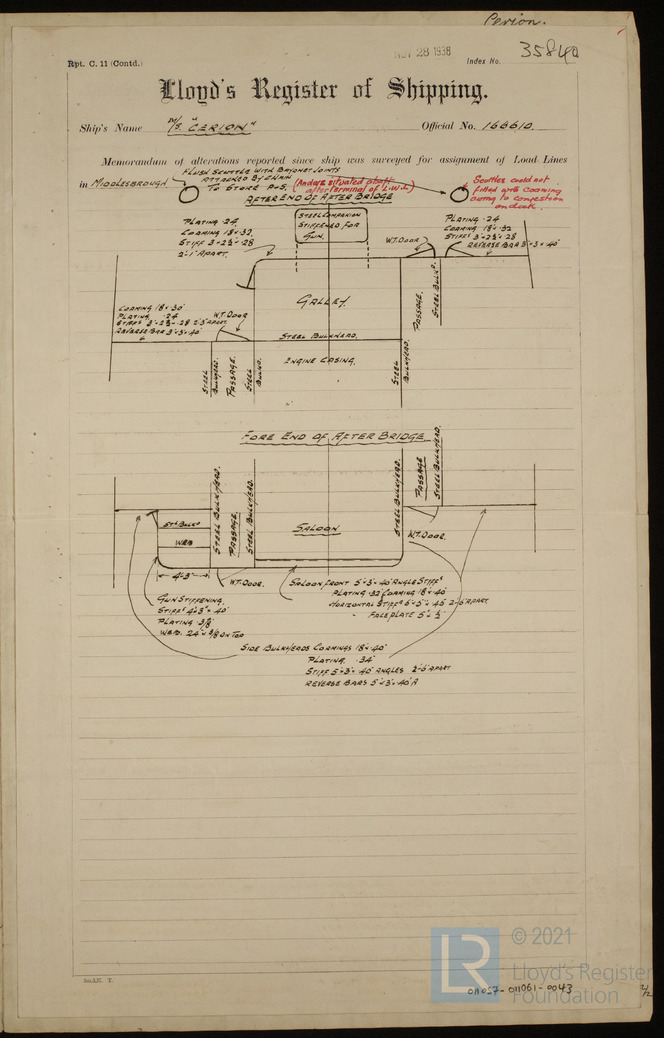 Cerion.
NOV 28 1938
35840
Rpt. C. 11 (Contd.)
Index No.
Lloyd's Register of Shipping.
Ship's Name M/S. "CERION"
Official No. 166610.
Memorandum of alterations reported since ship was surveyed for assignment of Load Lines
in MIDDLESBROUGH
FLUSH SCUTTLE WITH BAYONET JOINTS
ATTACHED BY CHAIN
TO STORE P&S.
(And are situated abaft
after terminal of L.W.L.)
Scuttles could not
be fitted with coaming
owing to congestion
on deck.
AFTER END OF AFTER BRIDGE
PLATING .24
COAMING 18 × .32
STIFF 3 × 2½ × .28
2'-1" APART.
STEEL COMPANION
STIFFENED FOR
GUN.
W.T. DOOR
PLATING .24
COAMING 18" × .32
STIFFS 3" × 2½ × .28
REVERSE BAR 3" × 3" × .40"
GALLEY.
PASSAGE.
STEEL BULKHD.
COAMING 18 × .30"
PLATING .24
STIFFS 3" × 2½ × .28 2'-3" APART.
REVERSE BAR 3" × 3" × .40"
W.T. DOOR
STEEL BULKHEAD.
ENGINE CASING.
STEEL
BULKHD.
PASSAGE.
STEEL
BULKD.
STEEL
BULKHD.
FORE END OF AFTER BRIDGE
STEEL BULKHEAD.
PASSAGE.
STEEL BULKHEAD.
STEEL BULKHEAD.
PASSAGE
STEEL BULKHEAD.
STL BULKD
WEB
SALOON
W.T. DOOR.
4'-3"
W.T. DOOR.
SALOON FRONT 5" × 3" × .40 ANGLE STIFFS
PLATING .32 COAMING 18" × .40"
HORIZONTAL STIFFS 6" × 3" × .45 2'-6" APART
FACE PLATE 5" × ½"
GUN STIFFENING.
STIFFS 4" × 3" × .40"
PLATING 3/8
WEB. 24" × 3/8 ON TOP
SIDE BULKHEADS COAMINGS 18" × .40"
PLATING. .34"
STIFF 5" × 3" × .40" ANGLES 2'-6" APART
REVERSE BARS 5" × 3" × .40"A
© 2021
LR
Lloyd's Register
Foundation
011057-011061-0043
2/2